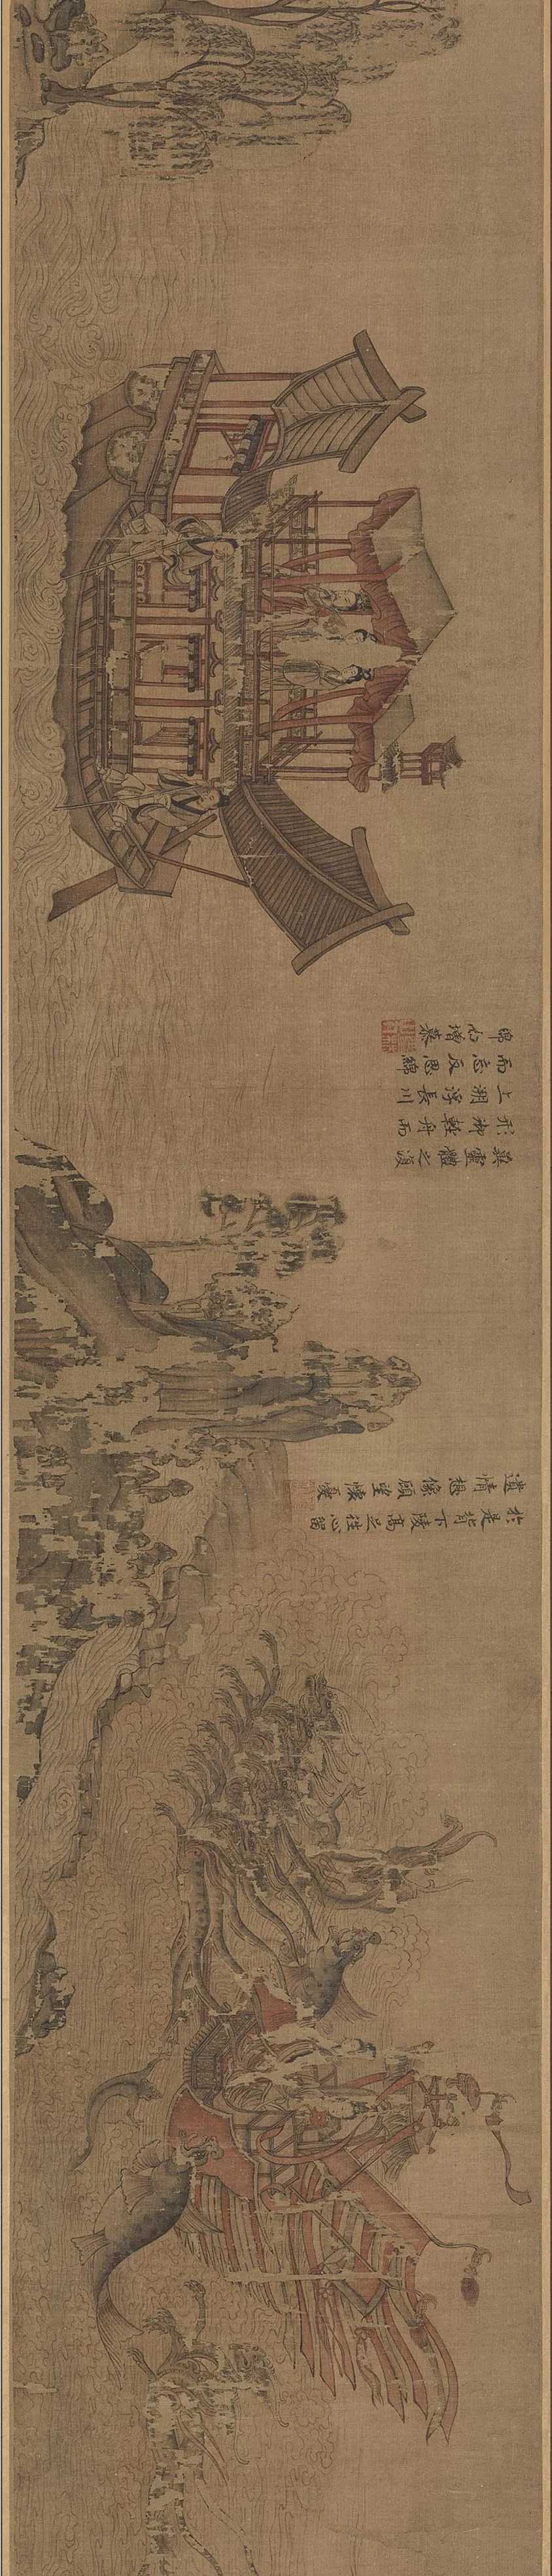 於是背下陵高足往心留
遺情想像顧望懷憂
冀靈體之復
形御輕舟而
上溯浮長川
而忘反思綿
綿而增慕